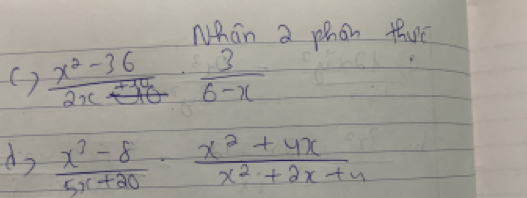 Nhân 2 phân thức
c, (x² - 36)/(2x + 10) · 3/(6 - x)
d, (x³ - 8)/(5x + 20) · (x² + 4x)/(x² + 2x + 4)